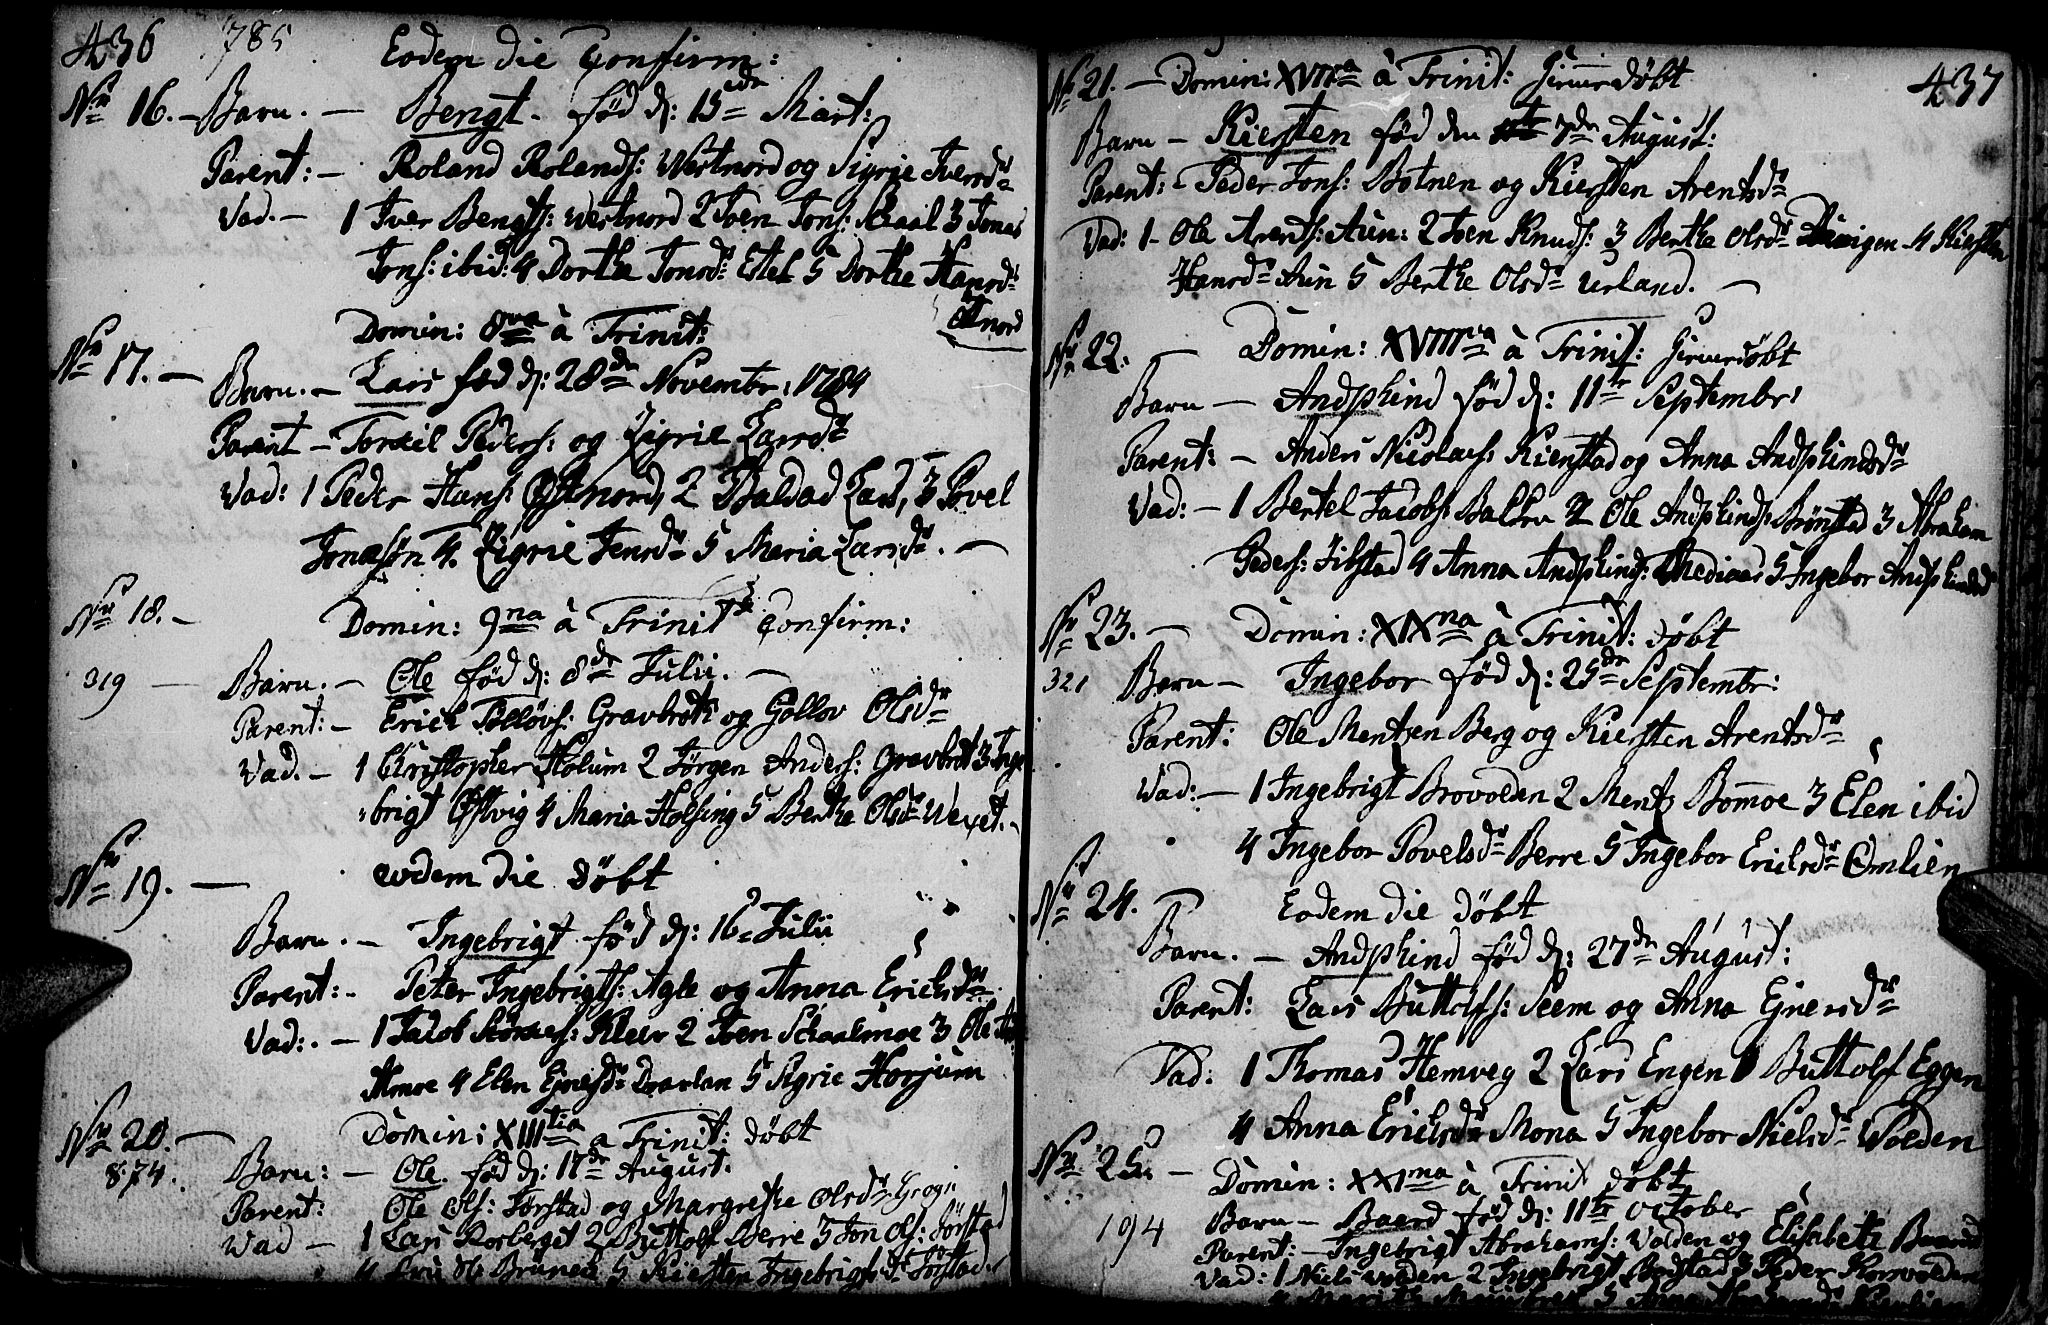 436 1785
Eodem die Confirm:
No 16. – Barn. – Bengt. fød d: 15de Mart:
Parent: – Roland Rolands: Westnord og Sigrie Iversdr
Vad. – 1 Iver Bengts: Westnord 2 Joen Jons: Skaal 3 Jonas
Jons: ibid: 4 Dorthe Jonsdr Ettel 5 Dorthe Hansdr
Østnord
Domin: 8va à Trinit:
No 17. –
Barn. – Lars fød d: 28de Novembr: 1784
Parent – Torkil Peders: og Zigrie Larsdr
Vad: 1 Peder Hans: Østnord, 2 Baldad Lars, 3 Povel
Jonasøn 4. Zigrie Jensdr 5 Maria Larsdr. –
No 18. – Domin: 9na à Trinit Confirm:
319 – Barn. – Ole fød d: 8de Julii. –
Parent: – Erich Tølløvs: Gravbrøt og Gollov Olsdr
Vad. – 1 Christopher Holum 2 Jørgen Anders: Gravbrøt 3 Inge
brigt Østvig 4 Maria Holsing 5 Berthe Olsdr
No 19. – eodem die døbt
Barn. – Ingebrigt fød d: 16 Julii
Parent: – Peter Ingebrigts: Agle og Anna Erichsdr
Vad: . – 1 Jacob Kleer 2 Joen Schaalmoe 3 Ole
Hmoe 4 Elen Ejnersdr Dravlan 5 Sigrie Horjum
No 20. – Domin: XIIItia a Trinit: døbt
874. Barn: – Ole. fød d: 17de August.
Parent: Ole Ols: Jørstad og Margrethe Olsdr Grogn
Vad – 1 Lars Rosberget 2 Buttolf Berre 3 Jon Ols: Jørstad
4 Fru Brunech 5 Kiersten Ingebrigtsdr Jørstad.
437
No 21. – Domin: XVIIma à Trinit: Hiemdøbt
Barn – Kiersten fød den 7de August:
Parent: – Peder Jons: Botnen og Kiersten Arentsdr
Vad: 1 – Ole Arents: Aun: 2 Joen Knuds: 3 Berthe Olsdr 4 Kiersten
Hansdr Aun 5 Berthe Olsdr Urland. –
No 22. Domin: XVIIIma à Trinit: Hiemdøbt
Barn – Andphind fød d: 11te Septembr:
Parent: – Anders Nicolaes: Kierstad og Anna Andphindsdr
Vad: – 1 Bertel Jacobs: Balhu 2 Ole Andphinds: Brønstad 3 Abraham
Peders: Filstad 4 Anna Andphinds: Mediaas 5 Ingebor Andphindsdr
No 23. – Domin: XIXna à Trinit: døbt
321 Barn – Ingebor fød d: 25de Septembr:
Parent: Ole Mentzen Berg og Kiersten Arentsdr
Vad: – 1 Ingebrigt Brovolden 2 Mentz Bomoe 3 Elen ibid
4 Ingebor Povelsdr Berre 5 Ingebor Erichsdr Omlien
No 24. Eodem die døbt
Barn. – Andphind fød d: 27de August:
Parent: Lars Buttolfs: Seem og Anna Ejnersdr
Vad: 1 Thomas Hemveg 2 Lars Engen 3 Buttolf Eggen
4 Anna Erichsdr Mona 5 Ingebor Nielsdr Wolden
No 25. – Domin: XXIma à Trinit døbt
194 Barn – Baard fød d: 11te October
Parent: – Ingebrigt Abrahams: Volden og Elisabeth Baardsdr
Vad: 1 Niels Volden 2 Ingebrigt 3 Peder Romvolden
4 5 Anna